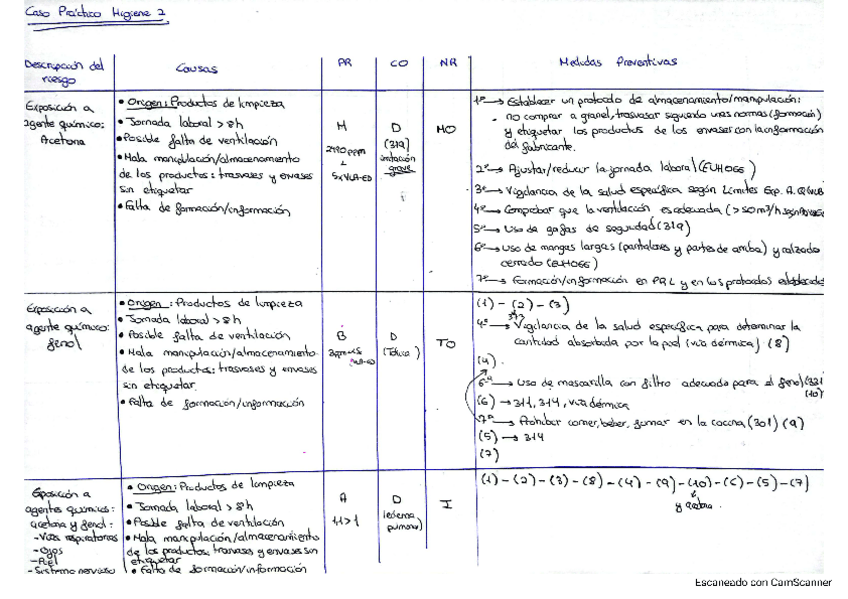 Caso Práctico Higiene 2
Descripción del riesgo
Causas
PR
CO
NR
Medidas Preventivas
Exposición a
agente químico:
Acetona
• Origen: Productos de limpieza
• Jornada laboral > 8h
• Posible falta de ventilación
• Mala manipulación/almacenamiento
de los productos: trasvases y envases
sin etiquetar
• Falta de formación/información
M
ppm
D
(319)
irritación
grave
MO
1º → Establecer un protocolo de almacenamiento/manipulación:
no comprar a granel, trasvasar siguiendo unas normas (formación)
y etiquetar los productos de los envases con la información
del fabricante.
2º → Ajustar/reducir la jornada laboral (EUH066)
3º → Vigilancia de la salud específica según Límites Exp. A.Q
4º → Comprobar que la ventilación es adecuada (>50m³/h
5º → Uso de gafas de seguridad (319)
6º → Uso de mangas largas (pantalones y partes de arriba) y calzado
cerrado (EUH066)
7º → Formación/información en PRL y en los protocolos establecidos
Exposición a
agente químico:
fenol
• Origen: Productos de limpieza
• Jornada laboral > 8h
• Posible falta de ventilación
• Mala manipulación/almacenamiento
de los productos: trasvases y envases
sin etiquetar
• Falta de formación/información
B
D
(Tóxico)
TO
(1) - (2) - (3)
4º → Vigilancia de la salud específica para determinar la
cantidad absorbida por la piel (vía dérmica) (8)
(4)
6º → Uso de mascarilla con filtro adecuado para el fenol
(10)
(6) → 311, 314, vía dérmica
7º → Prohibir comer, beber, fumar en la cocina (301) (9)
(5) → 314
(7)
Exposición a
agentes químicos:
acetona y fenol:
- Vías respiratorias
- Ojos
- Piel
- Sistema nervioso
• Origen: Productos de limpieza
• Jornada laboral > 8h
• Posible falta de ventilación
• Mala manipulación/almacenamiento
de los productos, trasvases y envases sin
etiquetar
• Falta de formación/información
A
1,1 > 1
D
(edema
pulmonar)
I
(1) - (2) - (3) - (8) - (4) - (9) - (10) - (6) - (5) - (7)
Escaneado con CamScanner